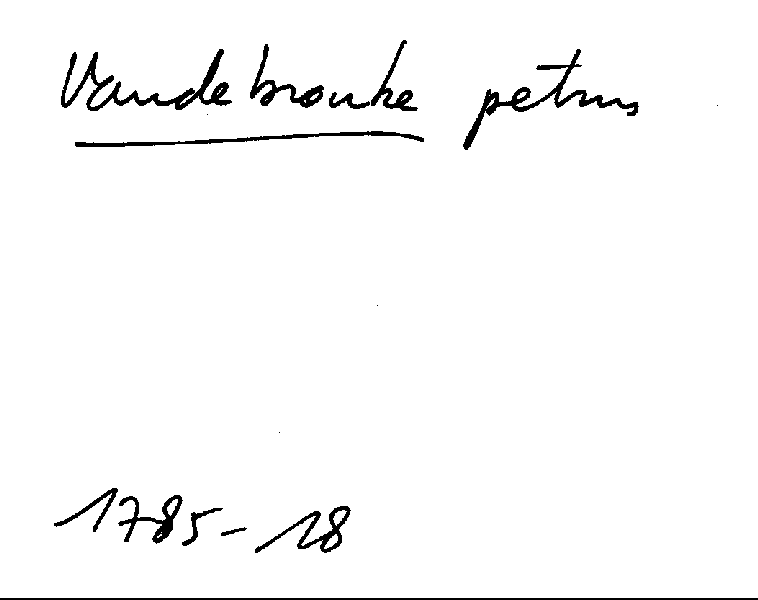 Vandebrouke petrus
1785-18